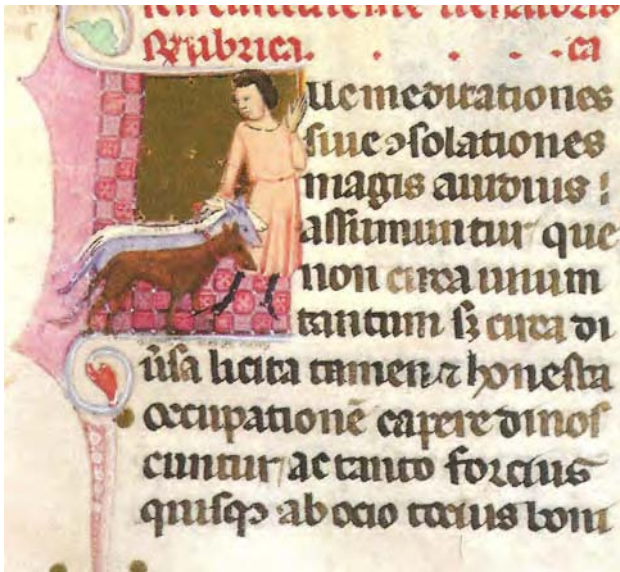 Rubrica. . . . . ca
lle meditationes
siue ɔsolationes
magis auidius :
assumuntur que
non circa unum
tantum sʒ circa di
ũsa licita tamen ⁊ honesta
occupationē capere dinos
cuntur ac tanto forcius
quisqꝫ ab ocio tocius boni